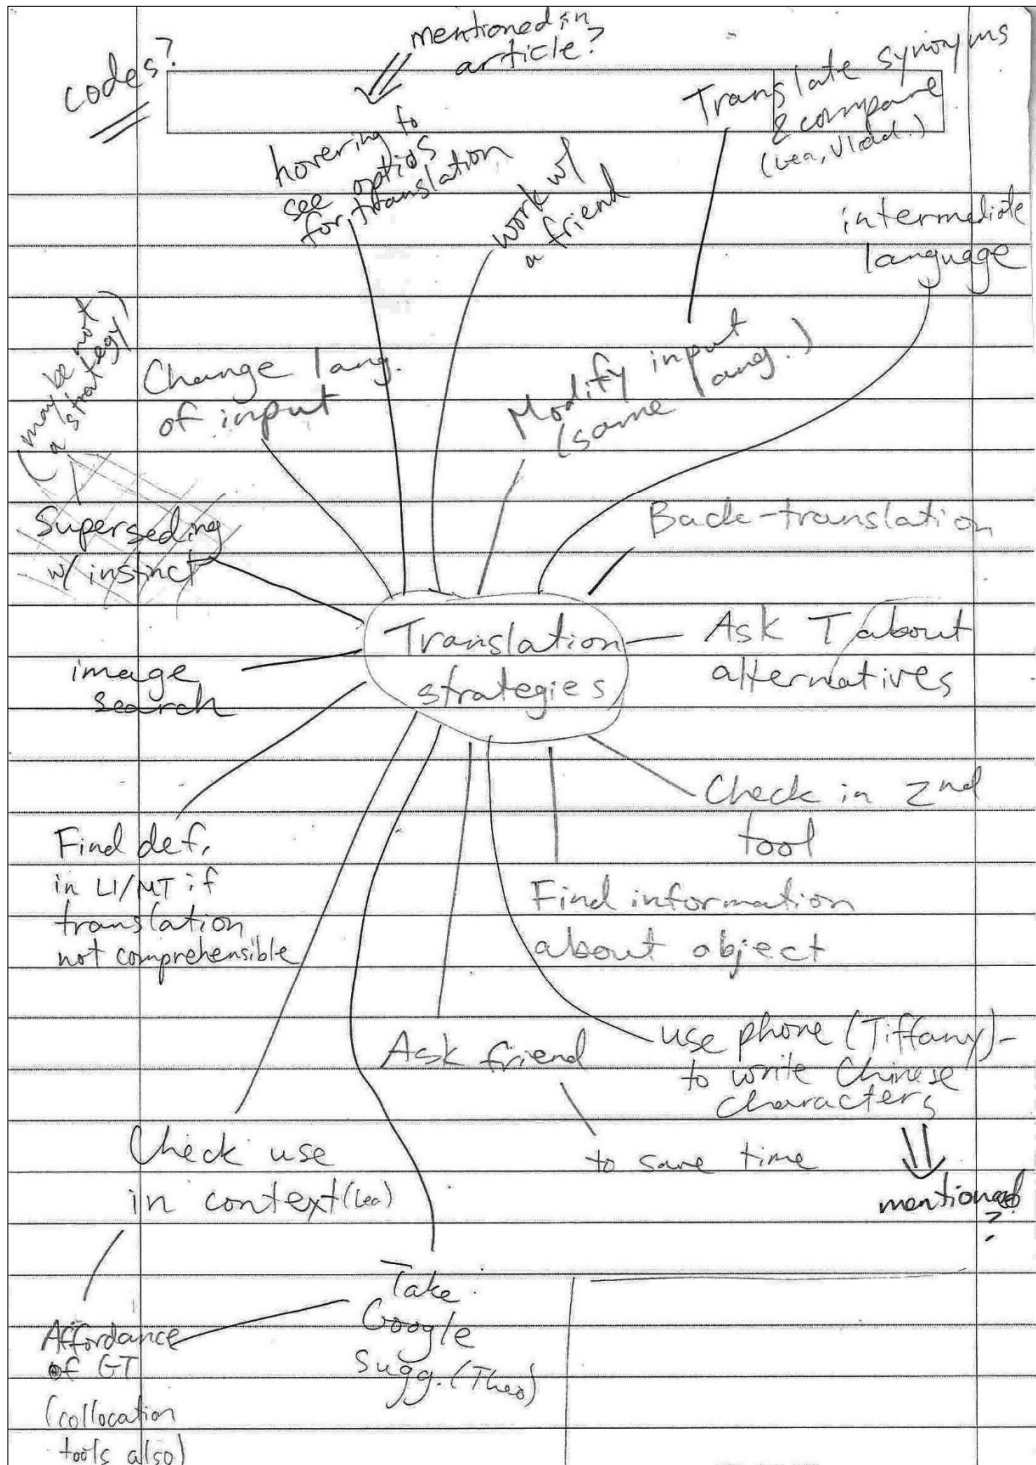 codes?
mentioned in
article?
Translate synonyms
& compare
(Lea, Vlad.)
hovering to
see options
for translation
work w/
a friend
intermediate
language
(may be not
a strategy)
Change lang.
of input
Modify input
(same lang.)
Superseding
w/ instinct
Back-translation
Translation
strategies
Ask T about
alternatives
image
search
Check in 2nd
tool
Find def.
in L1/MT if
translation
not comprehensible
Find information
about object
Ask friend
to save time
use phone (Tiffany)-
to write Chinese
characters
mentioned
?
Check use
in context (Lea)
Take
Google
Sugg. (Theo)
Affordance
of GT
(collocation
tools also)